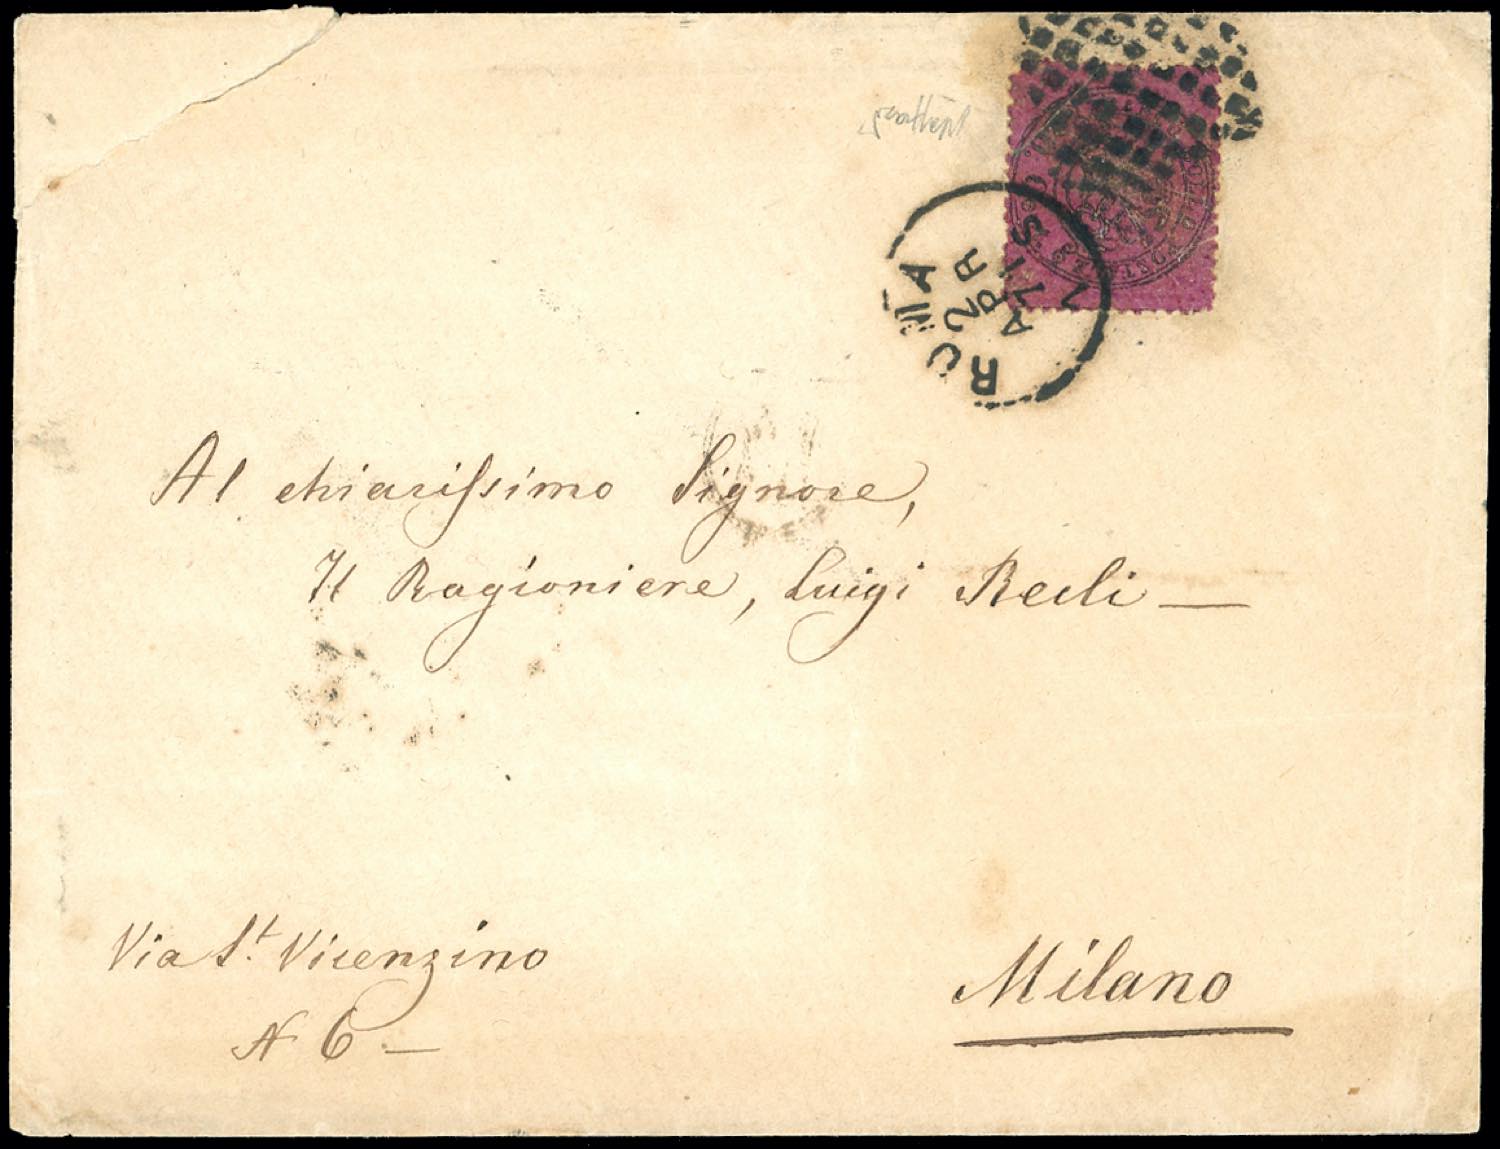 ROMA
2 APR
71 S
Al chiarissimo Signore,
Il Ragioniere, Luigi Redi —
Via S.t Vicenzino
N 6 —
Milano